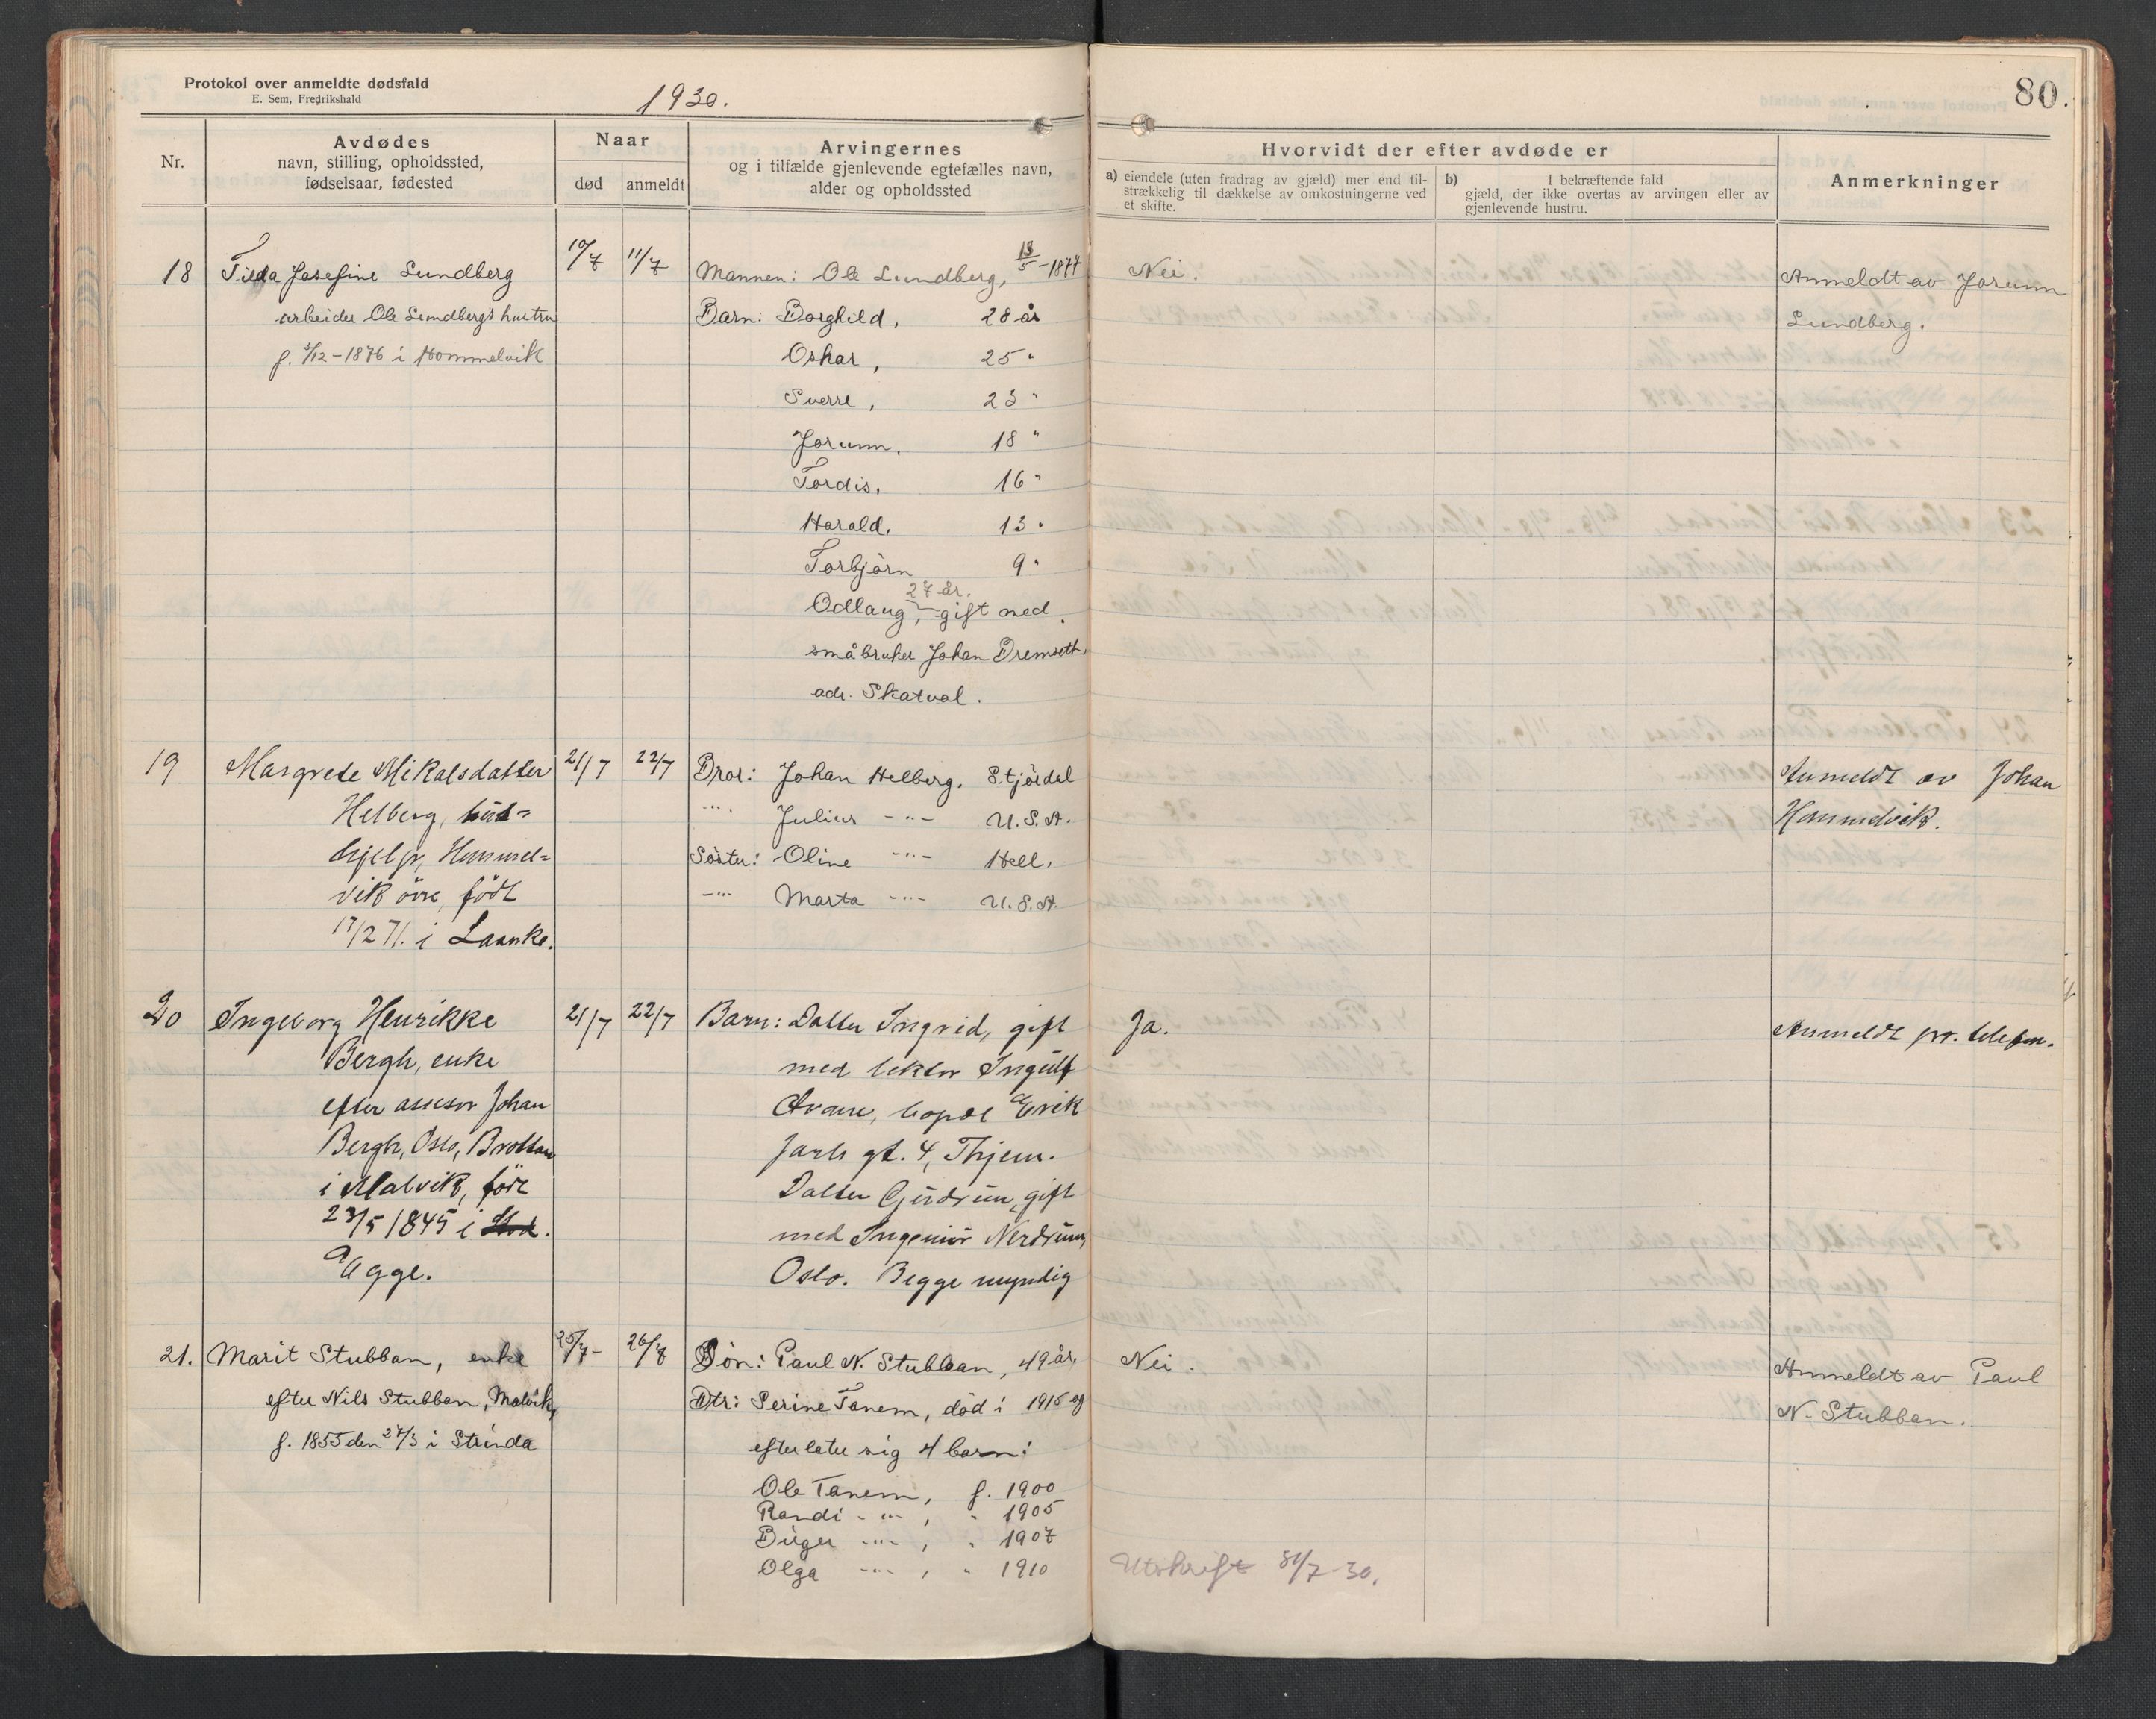 Protokol over anmeldte dødsfald
E. Sem, Fredrikshald
1930.
80.
Nr.
Avdødes
navn, stilling, opholdssted,
fødselsaar, fødested
Naar
død
anmeldt
Arvingernes
og i tilfælde gjenlevende egtefælles navn,
alder og opholdssted
Hvorvidt der efter avdøde er
a) eiendele (uten fradrag av gjæld) mer end til-
strækkelig til dækkelse av omkostningerne ved
et skifte.
b) I bekræftende fald
gjæld, der ikke overtas av arvingen eller av
gjenlevende hustru.
Anmerkninger
18 Tilda Josefine Lundberg
arbeider Ole Lundbergs hustru
f. 4/12-1876 i Hommelvik
10/7
11/7
Mannen: Ole Lundberg, 18/5-1877
Barn: Borghild, 28 år
Oskar, 25 "
Sverre, 23 "
Jorunn, 18 "
Tordis, 16 "
Harald, 13 "
Torbjörn 9 "
27 år.
Odlaug, gift med
småbruker Johan Dremsett,
adr. Skatval.
Nei.
Anmeldt av Jorunn
Lundberg.
19 Margrete Mikalsdatter
Helberg, hus=
hjelp, Hommel=
vik övre, födt
17/2 71. i Laanke.
21/7
22/7
Bror: Johan Helberg. Stjördal
-"- Julius -"- U.S.A.
Söster: Oline -"- Hell.
-"- Marta -"- U.S.A.
Anmeldt av Johan
Hommelvik.
20 Ingeborg Henrikke
Bergh, enke
efter assesor Johan
Bergh, Oslo, Brottan
i Malvik, född
23/5 1845 i Stod.
Egge.
21/7
22/7
Barn: Datter Ingrid, gift
med lektor Ingulf
bopæl Erik
Jarls gt. 4, Thjem.
Datter Gudrun, gift
med Ingeniör Nerdrum,
Oslo. Begge myndig
Ja.
Anmeldt pr. telefon.
21. Marit Stubban, enke
efter Nils Stubban, Malvik,
f. 1855 den 27/3 i Strinda
25/7-
26/7
Sön: Paul N. Stubban, 49 år,
Dtr: Serine Tanem, död i 1915 og
efterlater sig 4 barn:
Ole Tanem, f. 1900
Randi -"-, " 1905
Birger -"-, " 1907
Olga -"-, " 1910
Nei.
Anmeldt av Paul
N. Stubban.
Utskrift 31/7-30.